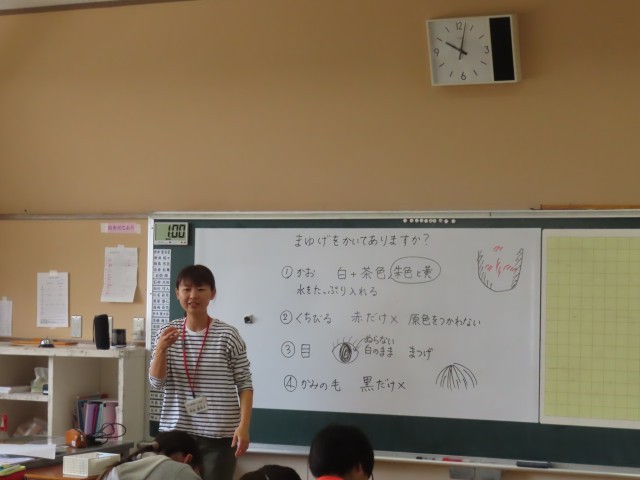 12
3
6
9
100
まゆげをかいてありますか?
① かお 白+茶色 朱色と黄
水をたっぷり入れる
② くちびる 赤だけ× 原色をつかわない
③ 目 ぬらない
白のまま まつげ
④ かみの毛 黒だけ×